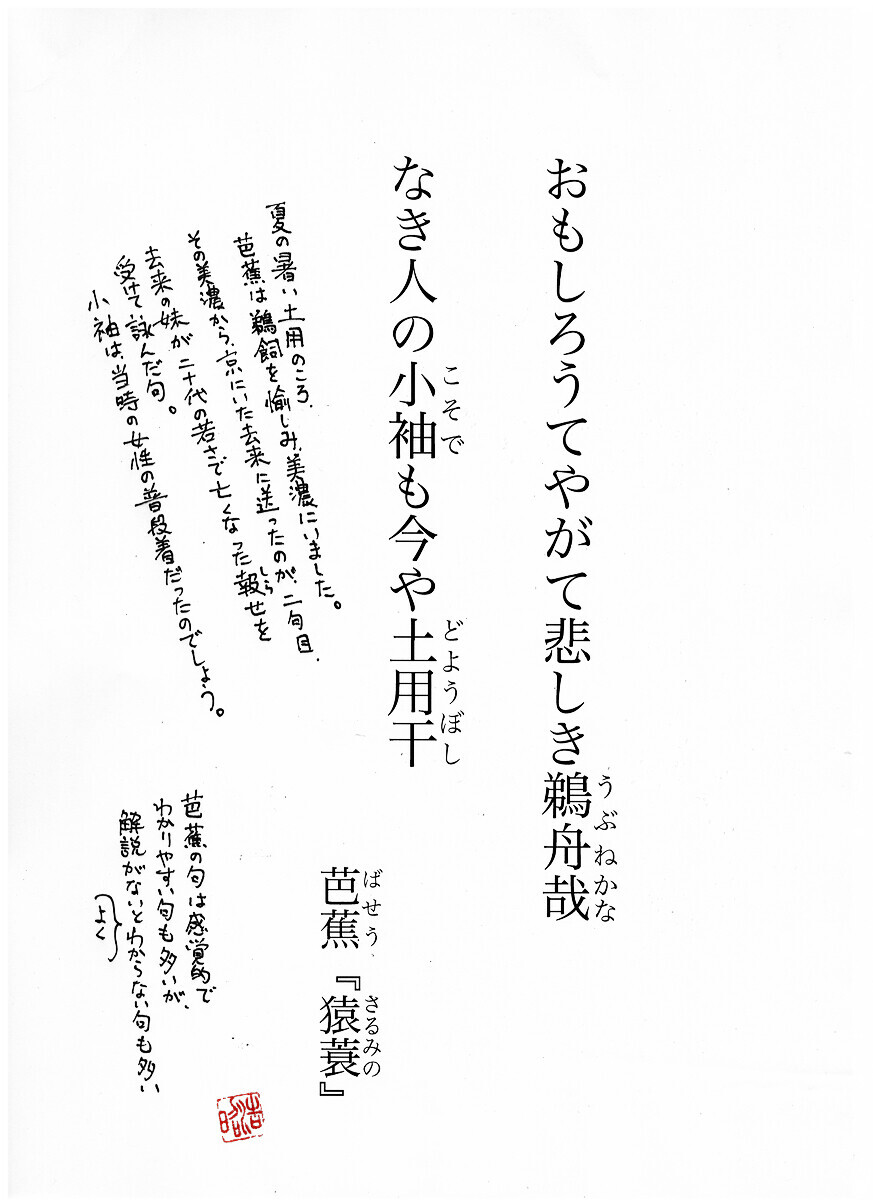 おもしろうてやがて悲しき鵜舟哉
うぶねかな
なき人の小袖も今や土用干
こそで
どようぼし
芭蕉『猿蓑』
ばせう
さるみの
夏の暑い土用のころ、
芭蕉は鵜飼を愉しみ、美濃にいました。
その美濃から、京にいた去来に送ったのが、二句目、
去来の妹が二十代の若さで亡くなった報せを
しら
受けて詠んだ句。
小袖は、当時の女性の普段着だったのでしょう。
芭蕉の句は感覚的で
わかりやすい句も多いが、
解説がないとわからない句も多い
よく